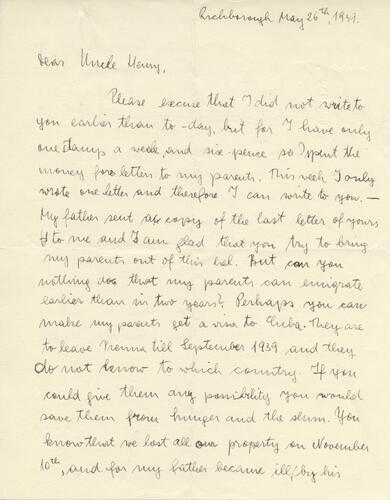 Richborough May 26th, 1939.
Dear Uncle Henry,
Please excuse that I did not write to
you earlier than to-day, but for I have only
one stamp a week and six pence so I spent the
money for letters to my parents. This week I only
wrote one letter and therefore I can write to you. —
My father sent a copy of the last letter of yours
to me and I am glad that you try to bring
my parents out of this hel. But can you
nothing do that my parents can emigrate
earlier than in two years? Perhaps you can
make my parents get a visa to Cuba. They are
to leave Vienna till September 1939 and they
do not know to which country. If you
could give them any possibility you would
save them from hunger and the slum. You
know that we lost all our property on November
10th, and for my father became ill, (by his